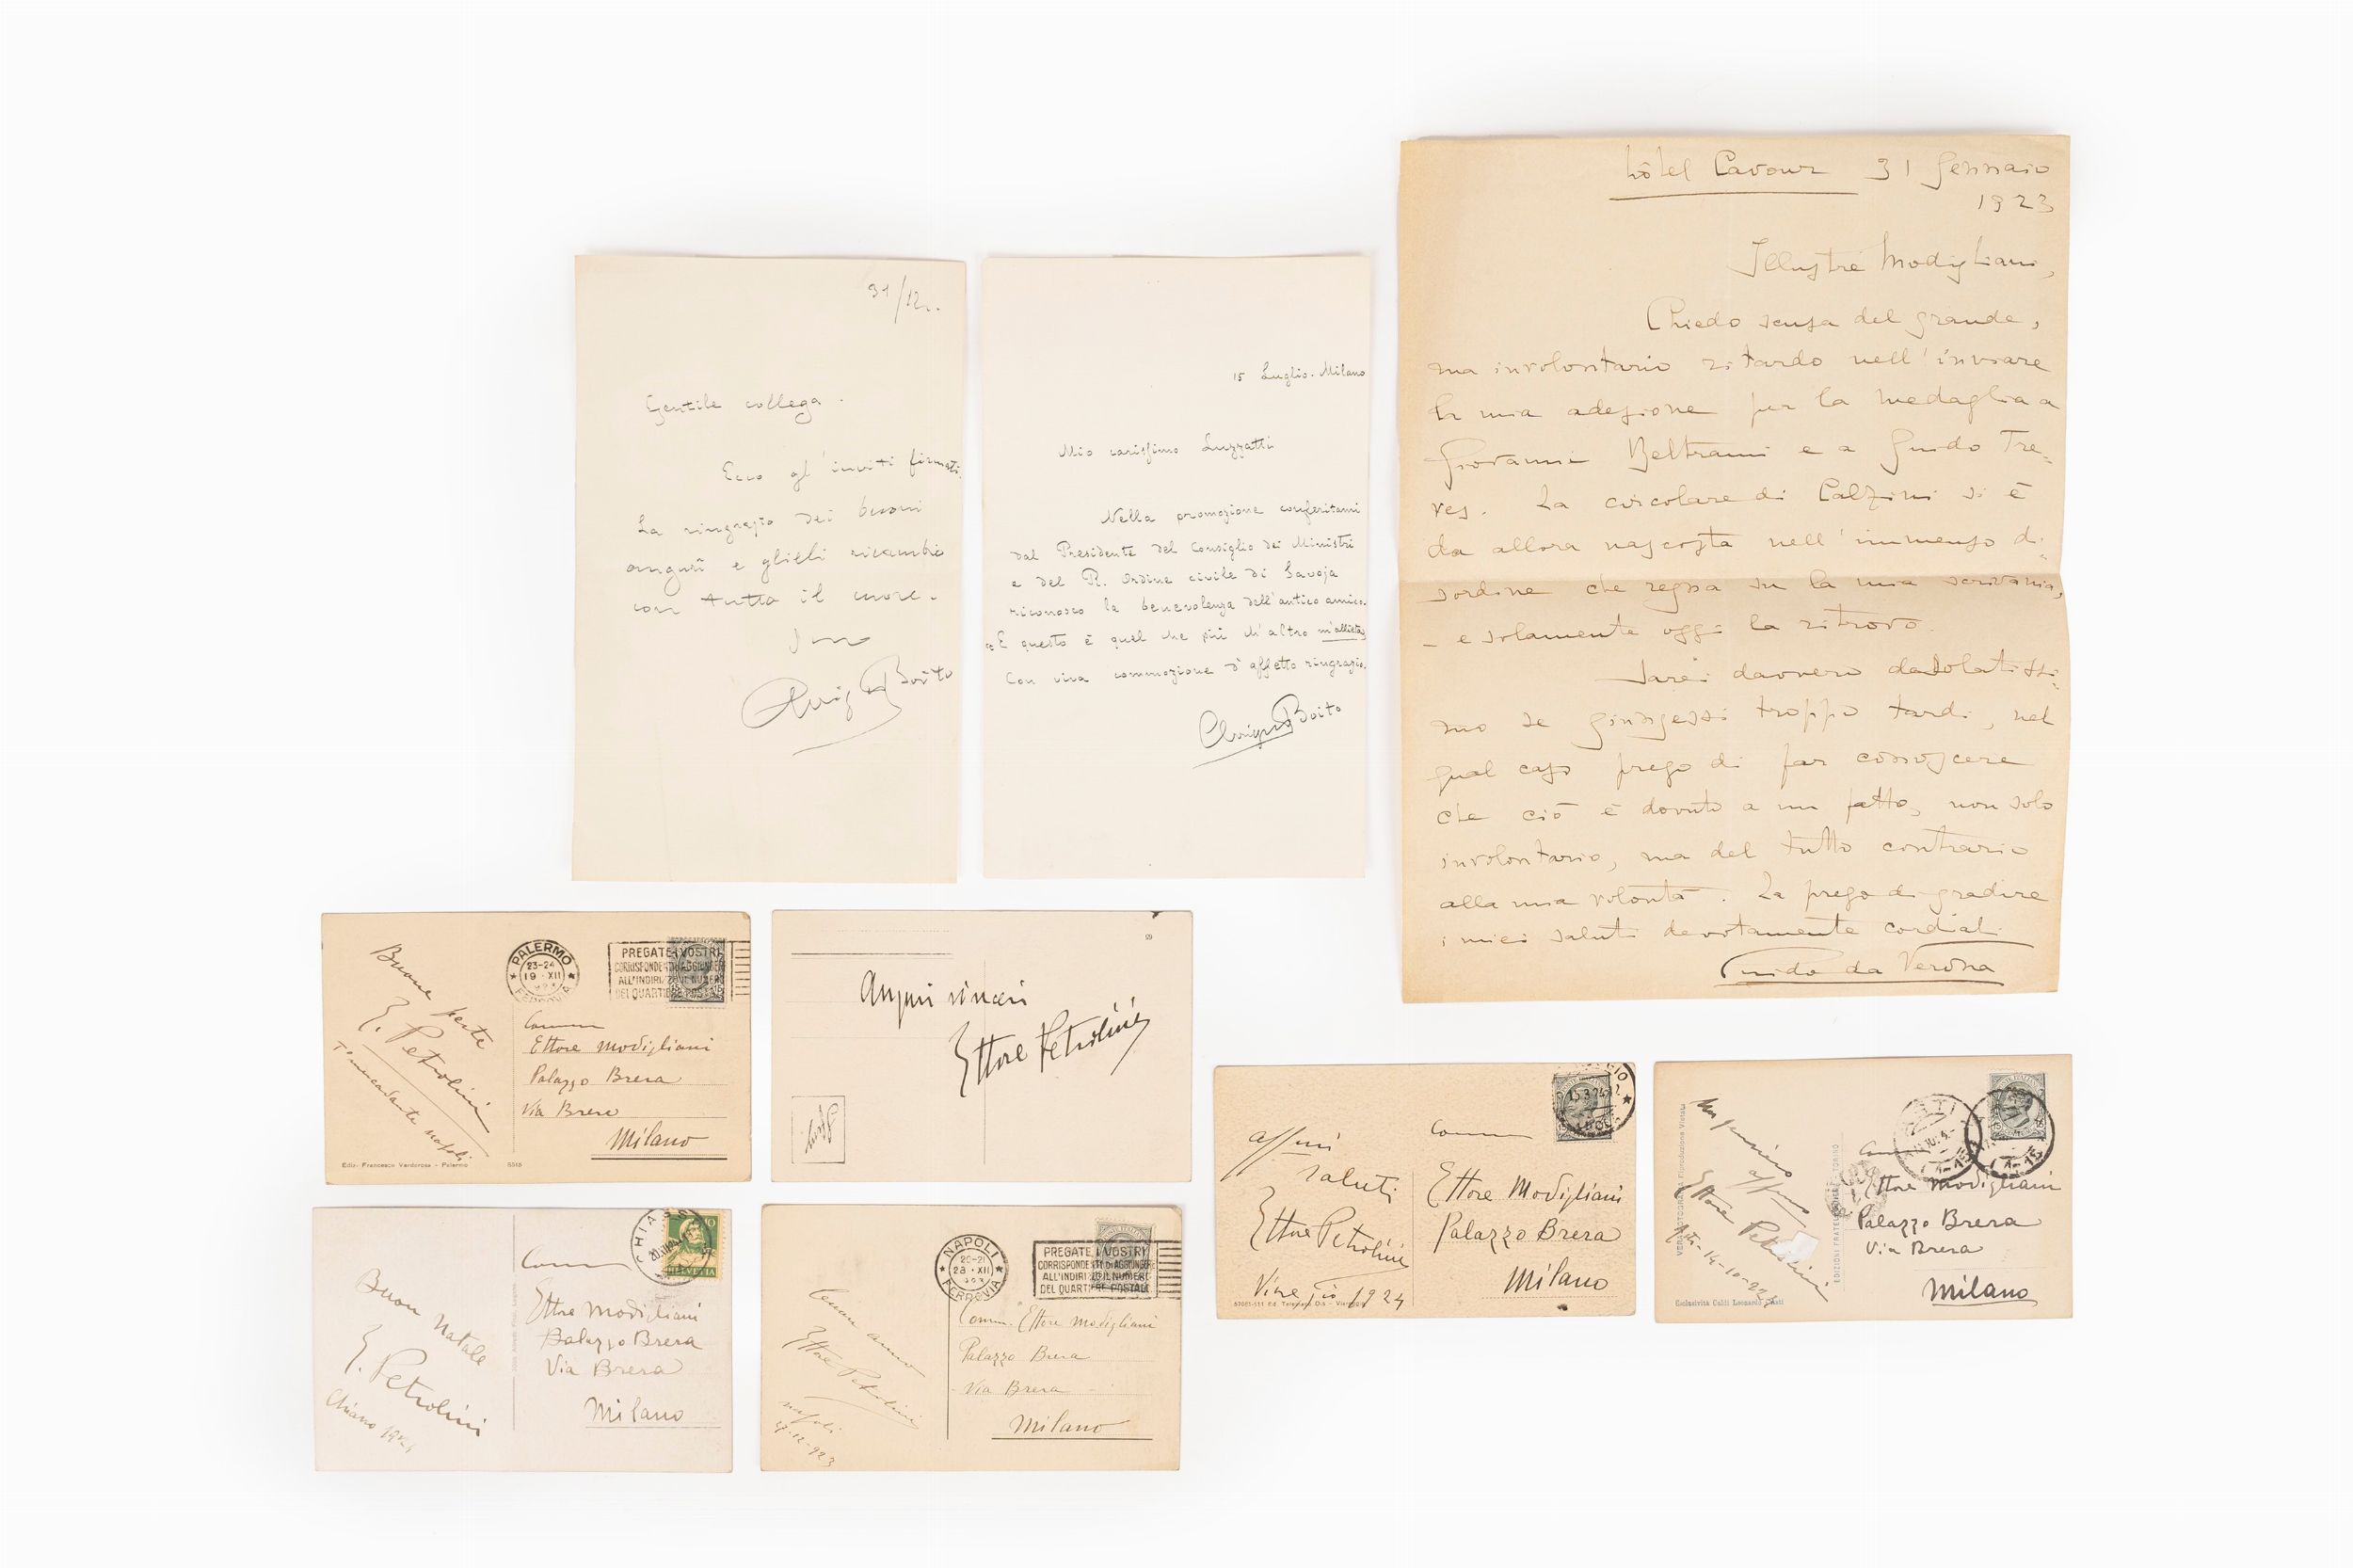 31/12.
Gentile collega.
Ecco gl'inviti firmati.
La ringrazio dei buoni
augurî e glieli ricambio
con tutto il cuore.
Suo
Arrigo Boito
15 Luglio. Milano
Mio carissimo Luzzatti
Nella promozione conferitami
dal Presidente del Consiglio dei Ministri
e del R. Ordine civile di Savoja
riconosco la benevolenza dell'antico amico.
E questo è quel che più d'altro m'allieta,
Con viva commozione d'affetto ringrazio.
Arrigo Boito
hôtel Cavour 31 Gennaio
1923
Illustre Modigliani,
Chiedo scusa del grande,
ma involontario ritardo nell'inviare
la mia adesione per la medaglia a
Giovanni Beltrami e a Guido Tre-
ves. La circolare di Calzini si è
da allora nascosta nell'immenso di-
sordine che regna su la mia scrivania,
- e solamente oggi la ritrovo.
Sarei davvero desolatissi-
mo se giungessi troppo tardi, nel
qual caso prego di far conoscere
che ciò è dovuto a un fatto, non solo
involontario, ma del tutto contrario
alla mia volontà. La prego di gradire
i miei saluti devotamente cordiali
Guido da Verona
Buone feste
E. Petrolini
Napoli
PALERMO
23-24
19 · XII
FERROVIA
PREGATE I VOSTRI
CORRISPONDENTI DI AGGIUNGERE
ALL'INDIRIZZO IL NUMERO
DEL QUARTIERE POSTALE
Comm
Ettore Modigliani
Palazzo Brera
Via Brera
Milano
Ediz. Francesco Verderosa - Palermo
Auguri sinceri
Ettore Petrolini
Buon Natale
E. Petrolini
CHIASSO
HELVETIA
Comm
Ettore Modigliani
Palazzo Brera
Via Brera
Milano
anno
Ettore Petrolini
Napoli
27-12-923
NAPOLI
20-21
28 · XII
FERROVIA
PREGATE I VOSTRI
CORRISPONDENTI DI AGGIUNGERE
ALL'INDIRIZZO IL NUMERO
DEL QUARTIERE POSTALE
Comm. Ettore Modigliani
Palazzo Brera
Via Brera
Milano
affmi
saluti
Ettore Petrolini
Viareggio 1924
15.3.24
Comm
Ettore Modigliani
Palazzo Brera
Milano
Ettore Petrolini
Comm
Ettore Modigliani
Palazzo Brera
Via Brera
Milano